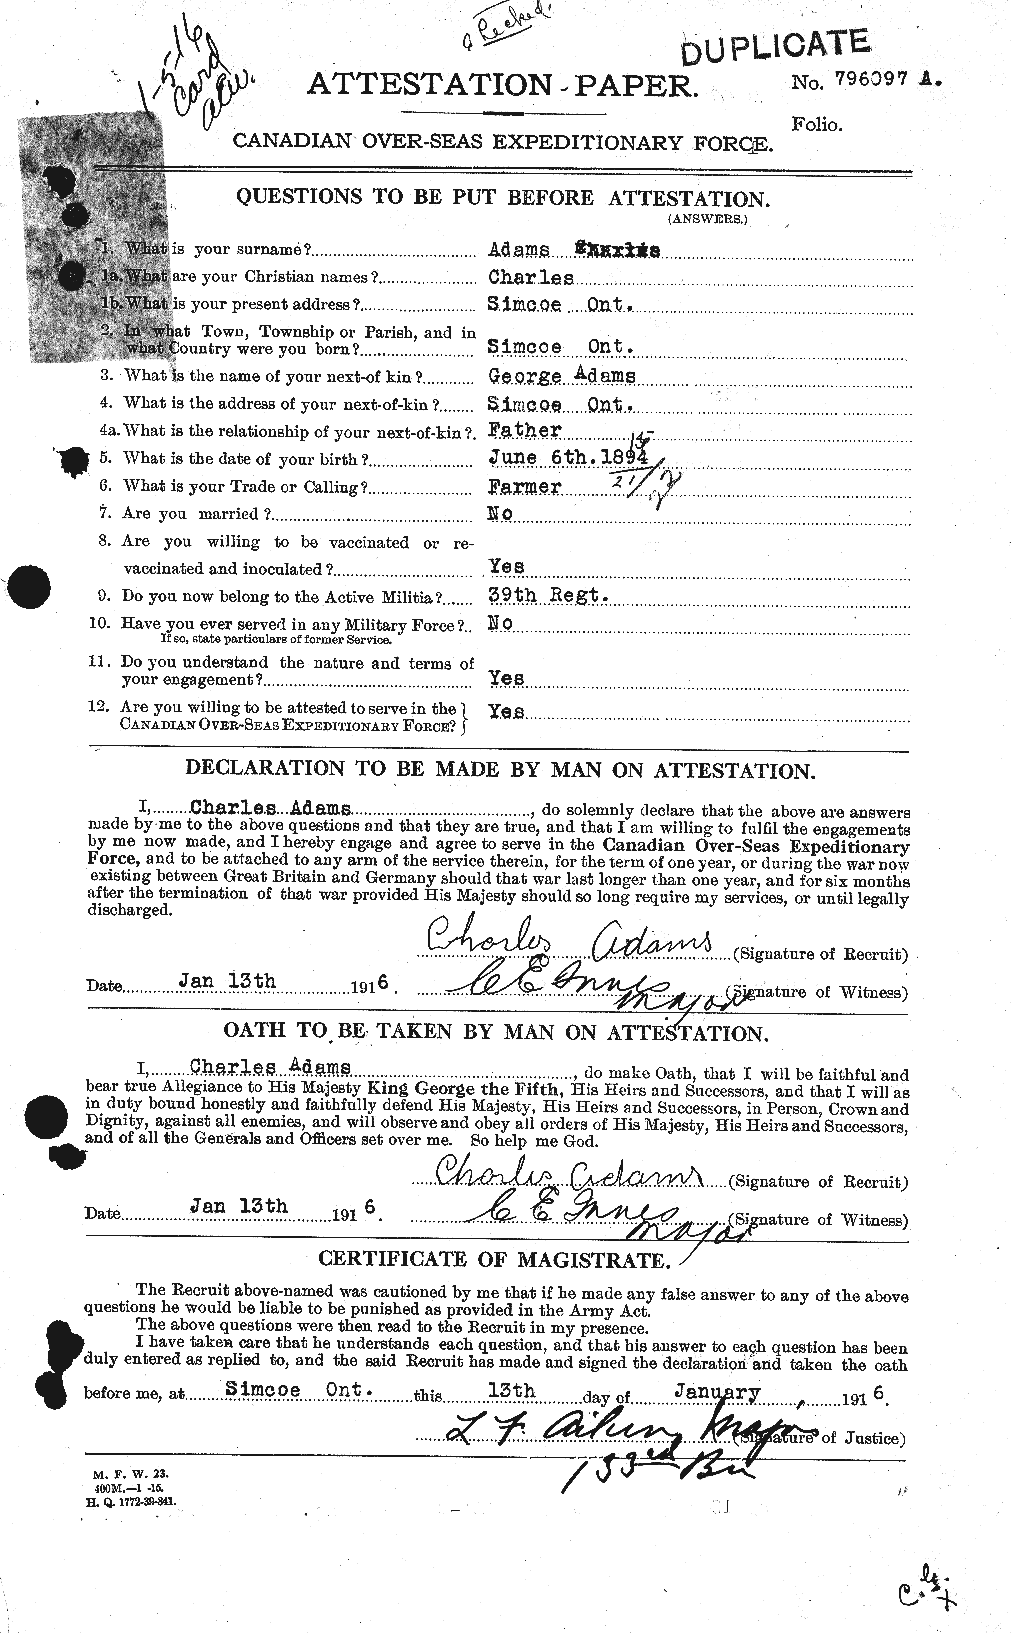 1-5-16
Card
Checked.
DUPLICATE
ATTESTATION - PAPER.
No. 796097 A.
Folio.
CANADIAN OVER-SEAS EXPEDITIONARY FORCE.
QUESTIONS TO BE PUT BEFORE ATTESTATION.
(ANSWERS.)
1. What is your surname? Adams Charles
1a. What are your Christian names? Charles
1b. What is your present address? Simcoe Ont.
2. In what Town, Township or Parish, and in
what Country were you born? Simcoe Ont.
3. What is the name of your next-of kin? George Adams
4. What is the address of your next-of-kin? Simcoe Ont.
4a. What is the relationship of your next-of-kin? Father
15
5. What is the date of your birth? June 6th. 1894
6. What is your Trade or Calling? Farmer 21/
7. Are you married? No
8. Are you willing to be vaccinated or re-
vaccinated and inoculated? Yes
9. Do you now belong to the Active Militia? 39th Regt.
10. Have you ever served in any Military Force? No
If so, state particulars of former Service.
11. Do you understand the nature and terms of
your engagement? Yes
12. Are you willing to be attested to serve in the } Yes
CANADIAN OVER-SEAS EXPEDITIONARY FORCE?
DECLARATION TO BE MADE BY MAN ON ATTESTATION.
I, Charles Adams, do solemnly declare that the above are answers
made by me to the above questions and that they are true, and that I am willing to fulfil the engagements
by me now made, and I hereby engage and agree to serve in the Canadian Over-Seas Expeditionary
Force, and to be attached to any arm of the service therein, for the term of one year, or during the war now
existing between Great Britain and Germany should that war last longer than one year, and for six months
after the termination of that war provided His Majesty should so long require my services, or until legally
discharged.
Charles Adams (Signature of Recruit)
Date Jan 13th 1916. C E Innes Major (Signature of Witness)
OATH TO BE TAKEN BY MAN ON ATTESTATION.
I, Charles Adams, do make Oath, that I will be faithful and
bear true Allegiance to His Majesty King George the Fifth, His Heirs and Successors, and that I will as
in duty bound honestly and faithfully defend His Majesty, His Heirs and Successors, in Person, Crown and
Dignity, against all enemies, and will observe and obey all orders of His Majesty, His Heirs and Successors,
and of all the Generals and Officers set over me. So help me God.
Charles Adams (Signature of Recruit)
Date Jan 13th 1916. C E Innes Major (Signature of Witness)
CERTIFICATE OF MAGISTRATE.
The Recruit above-named was cautioned by me that if he made any false answer to any of the above
questions he would be liable to be punished as provided in the Army Act.
The above questions were then read to the Recruit in my presence.
I have taken care that he understands each question, and that his answer to each question has been
duly entered as replied to, and the said Recruit has made and signed the declaration and taken the oath
before me, at Simcoe Ont. this 13th day of January, 1916.
L F Aiken, Major (Signature of Justice)
133rd Bn
M. F. W. 23.
400M.—1-15.
H. Q. 1772-39-841.